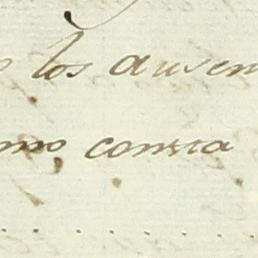 los ausen
mo consta